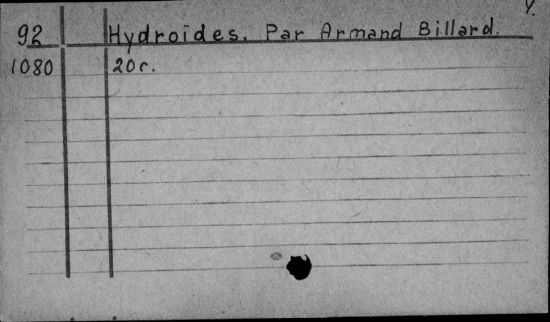 92 Hydroïdes. Par Armand Billard.
1080 20c.